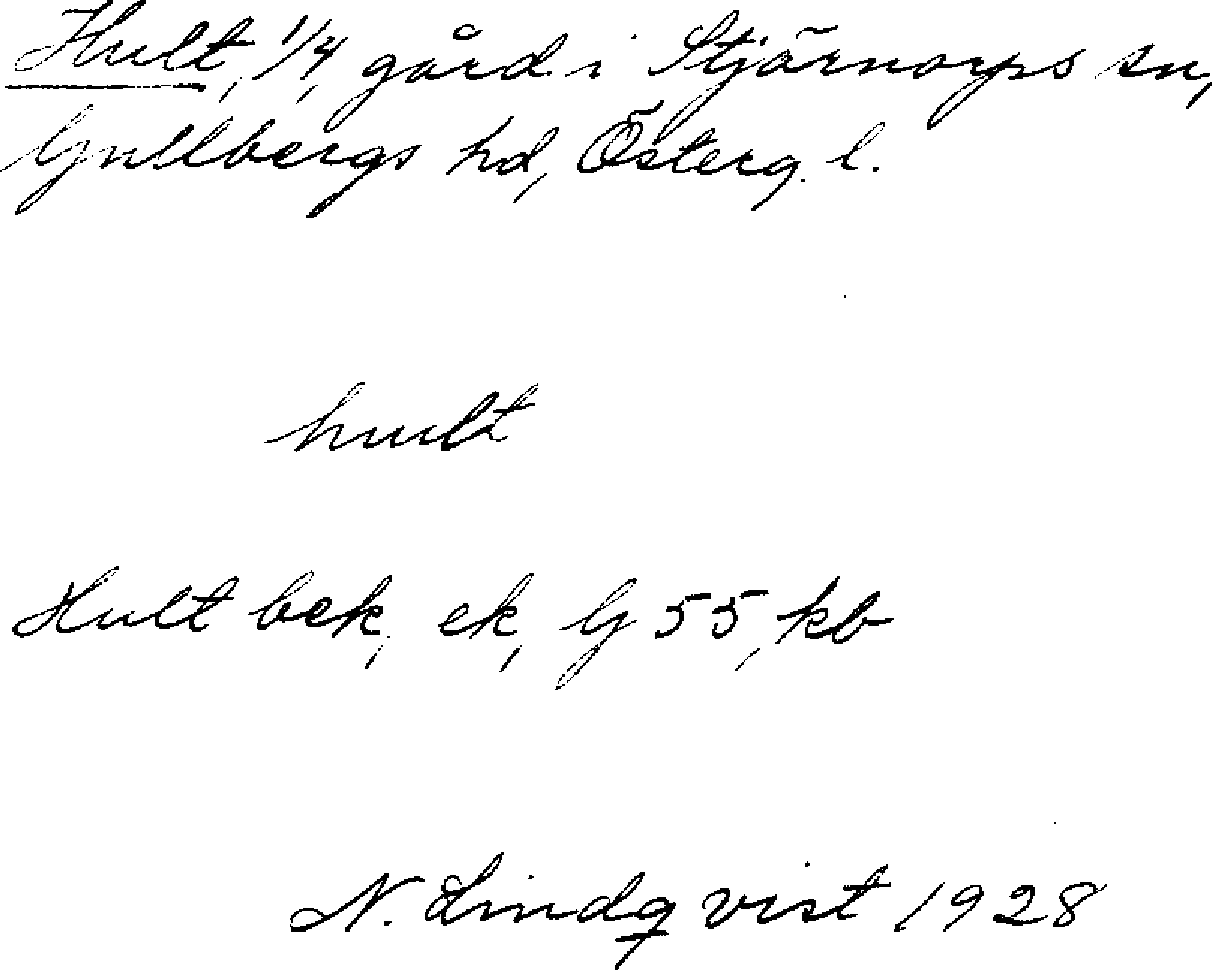 Hult, 1/4, gård i Stjärnorps sn,
Gullbergs hd, Österg. l.
hult
Hult bek, ek, G 55, kb
N. Lindqvist 1928